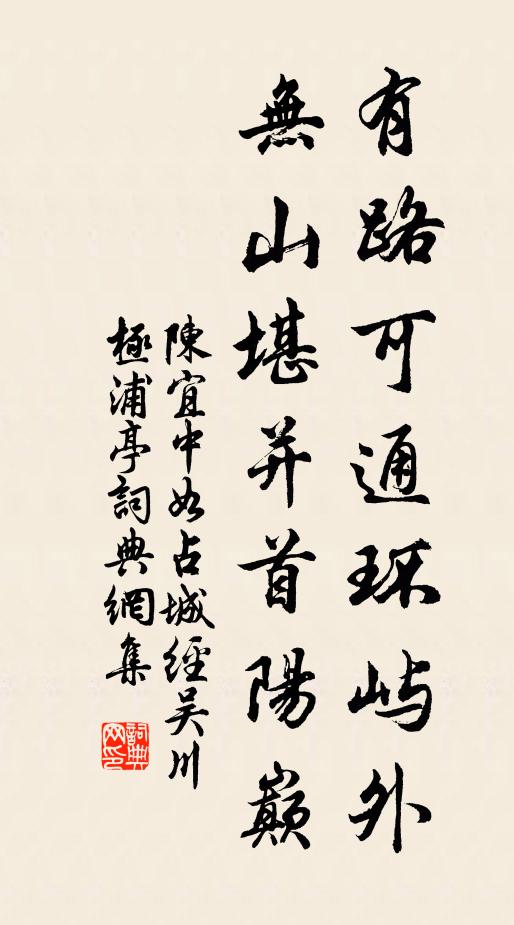 有路可通环屿外
無山堪并首陽巔
陳宜中如占城經吴川
極浦亭詞典網集
詞典網印